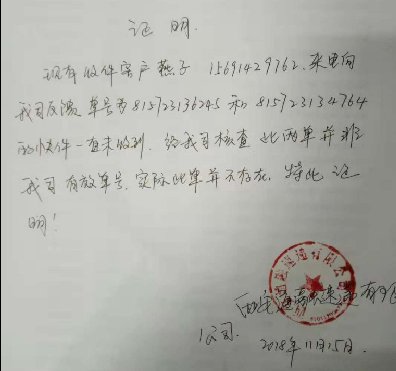 证明.
现有收件客户燕子 15691429762.来电向
我司反馈单号为815723136245和815723134764
的快件一直未收到.经我司核查此两单并非
我司有效单号.实际此单并不存在.特此证
明!
有限
公司.
2018年11月15日.